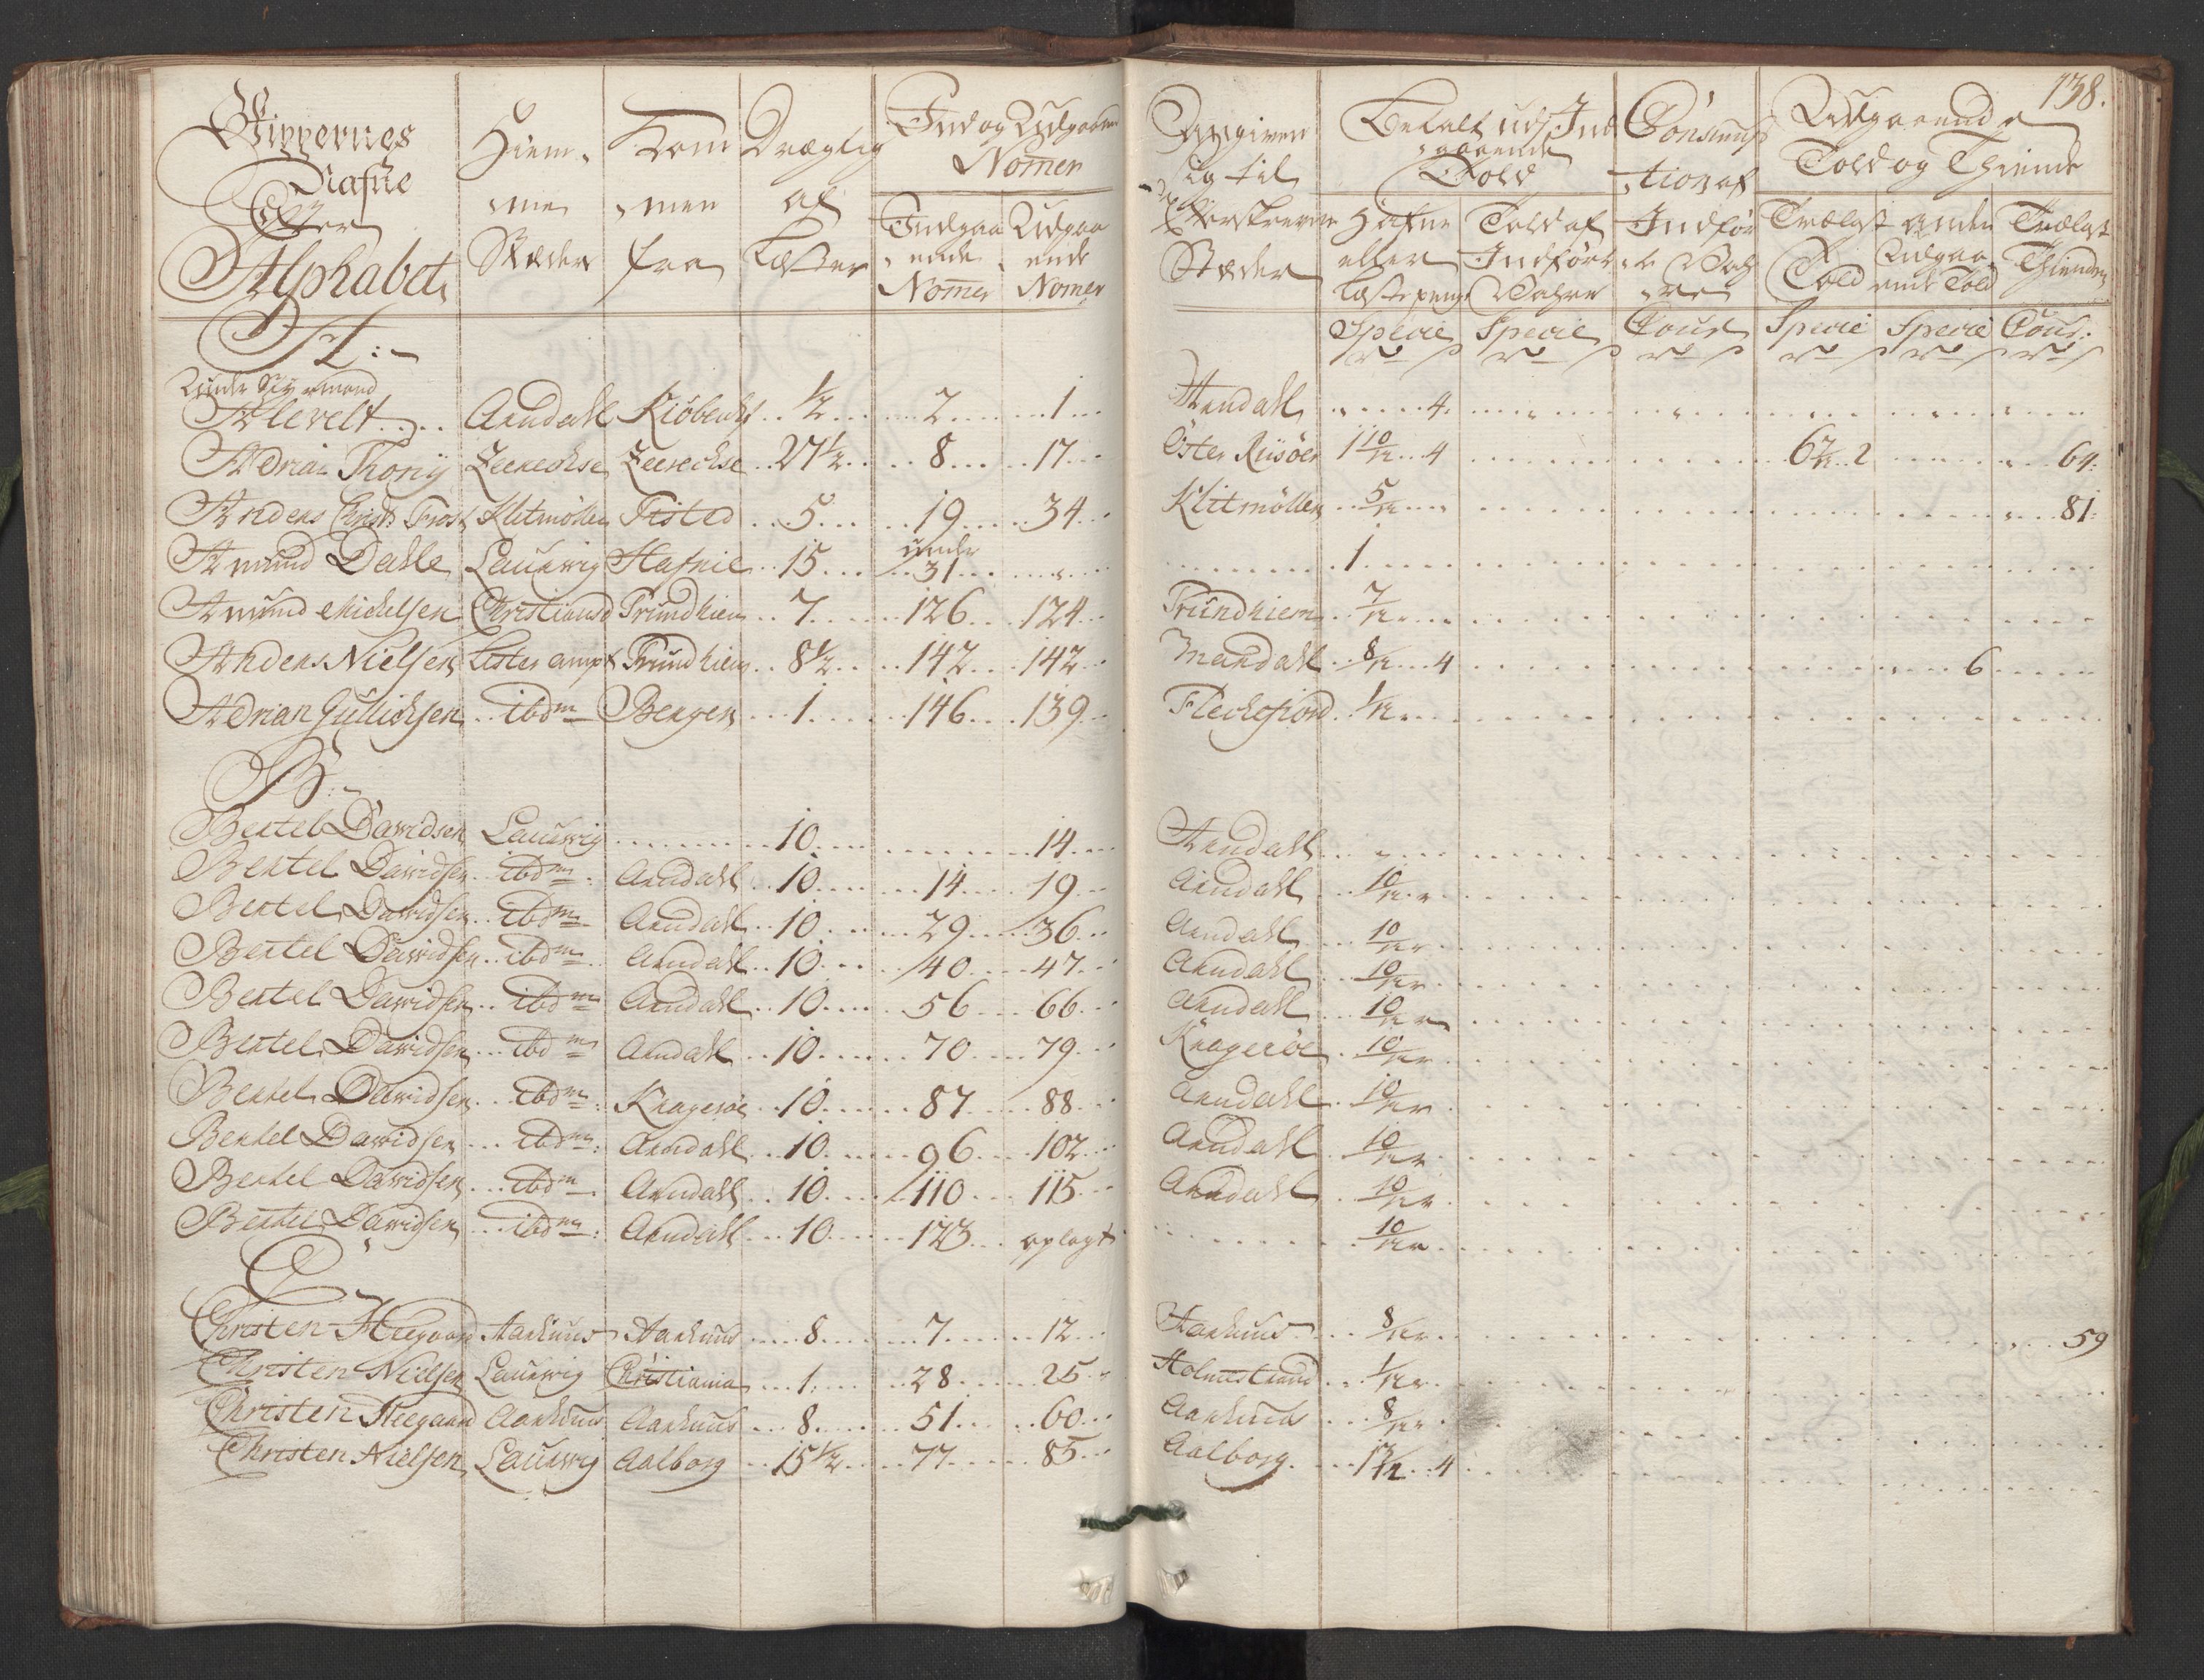 138.
Skippernes Nafne Efter Alphabet
Hiemme Stæder
Kommen fra
Drægtig af Læster
Ind og Udgaaende Nomer
Indgaaende Nomer
Udgaaende Nomer
Angiven sig til Efterskrevne Stæder
Betalt udj Indgaaende Told
Consumption af
Udgaaende Told og Thiende
Hafne eller Læstepenge
Told af Indførte Vahre
Indførte Vahre
Trælast Told
anden Udgaaende Told
Trælast Thiende
Specie Specie Cour Specie Specie Cour:
A:
Under Styrmand
Alevelt Arndahl Kiöbenh 1/2 2 1 Arndahl 4
Adrian Thonÿ Zeerechse Zeerechse 27 1/2 8 17 Öster Riisöer 1 10/12 4 2 64:
Anders Christ: Frost Klitmöller Tisted 5 19 34 Klitmöller 5/12 81:
Amund Dahle Laurwig Hafnie 15 under 31 1
Amund Michelsen Christiansd Trundhiem 7 126 124 Trundhiem 7/12
Anders Nielsen Lister ampt Trundhiem 8 1/2 142 142 Mandahl 8/12 4 6
Adrian Gullichsen ibdm Bergen 1 146 139 Flechefiord 1/12
B:
Bertel Davidsen Laurwig 10 14 Arndahl
Bertel Davidsen ibdm Arndahl 10 14 19 Arndahl 10/12
Bertel Davidsen ibdm Arndahl 10 29 36 Arndahl 10/12
Bertel Davidsen ibdm Arndahl 10 40 47 Arndahl 10/12
Bertel Davidsen ibdm Arndahl 10 56 66 Arndahl 10/12
Bertel Davidsen ibdm Arndahl 10 70 79 Krageröe 10/12
Bertel Davidsen ibdm Krageröe 10 87 88 Arndahl 10/12
Bertel Davidsen ibdm Arndahl 10 96 102 Arndahl 10/12
Bertel Davidsen ibdm Arndahl 10 110 115 Arndahl 10/12
Bertel Davidsen ibdm Arndahl 10 123 oplagt 10/12
C
Christen Heegaard Aarhuus Aarhuus 8 7 12 Aarhuus 8/12 59
Christen Nielsen Laurwig Christiania 1 28 25 Holmestrand 1/12
Christen Heegaard Aarhuus Aarhuus 8 51 60 Aarhuus 8/12
Christen Nielsen Laurwig Aalborg 15 1/2 77 85 Aalborg 1 3/12 4